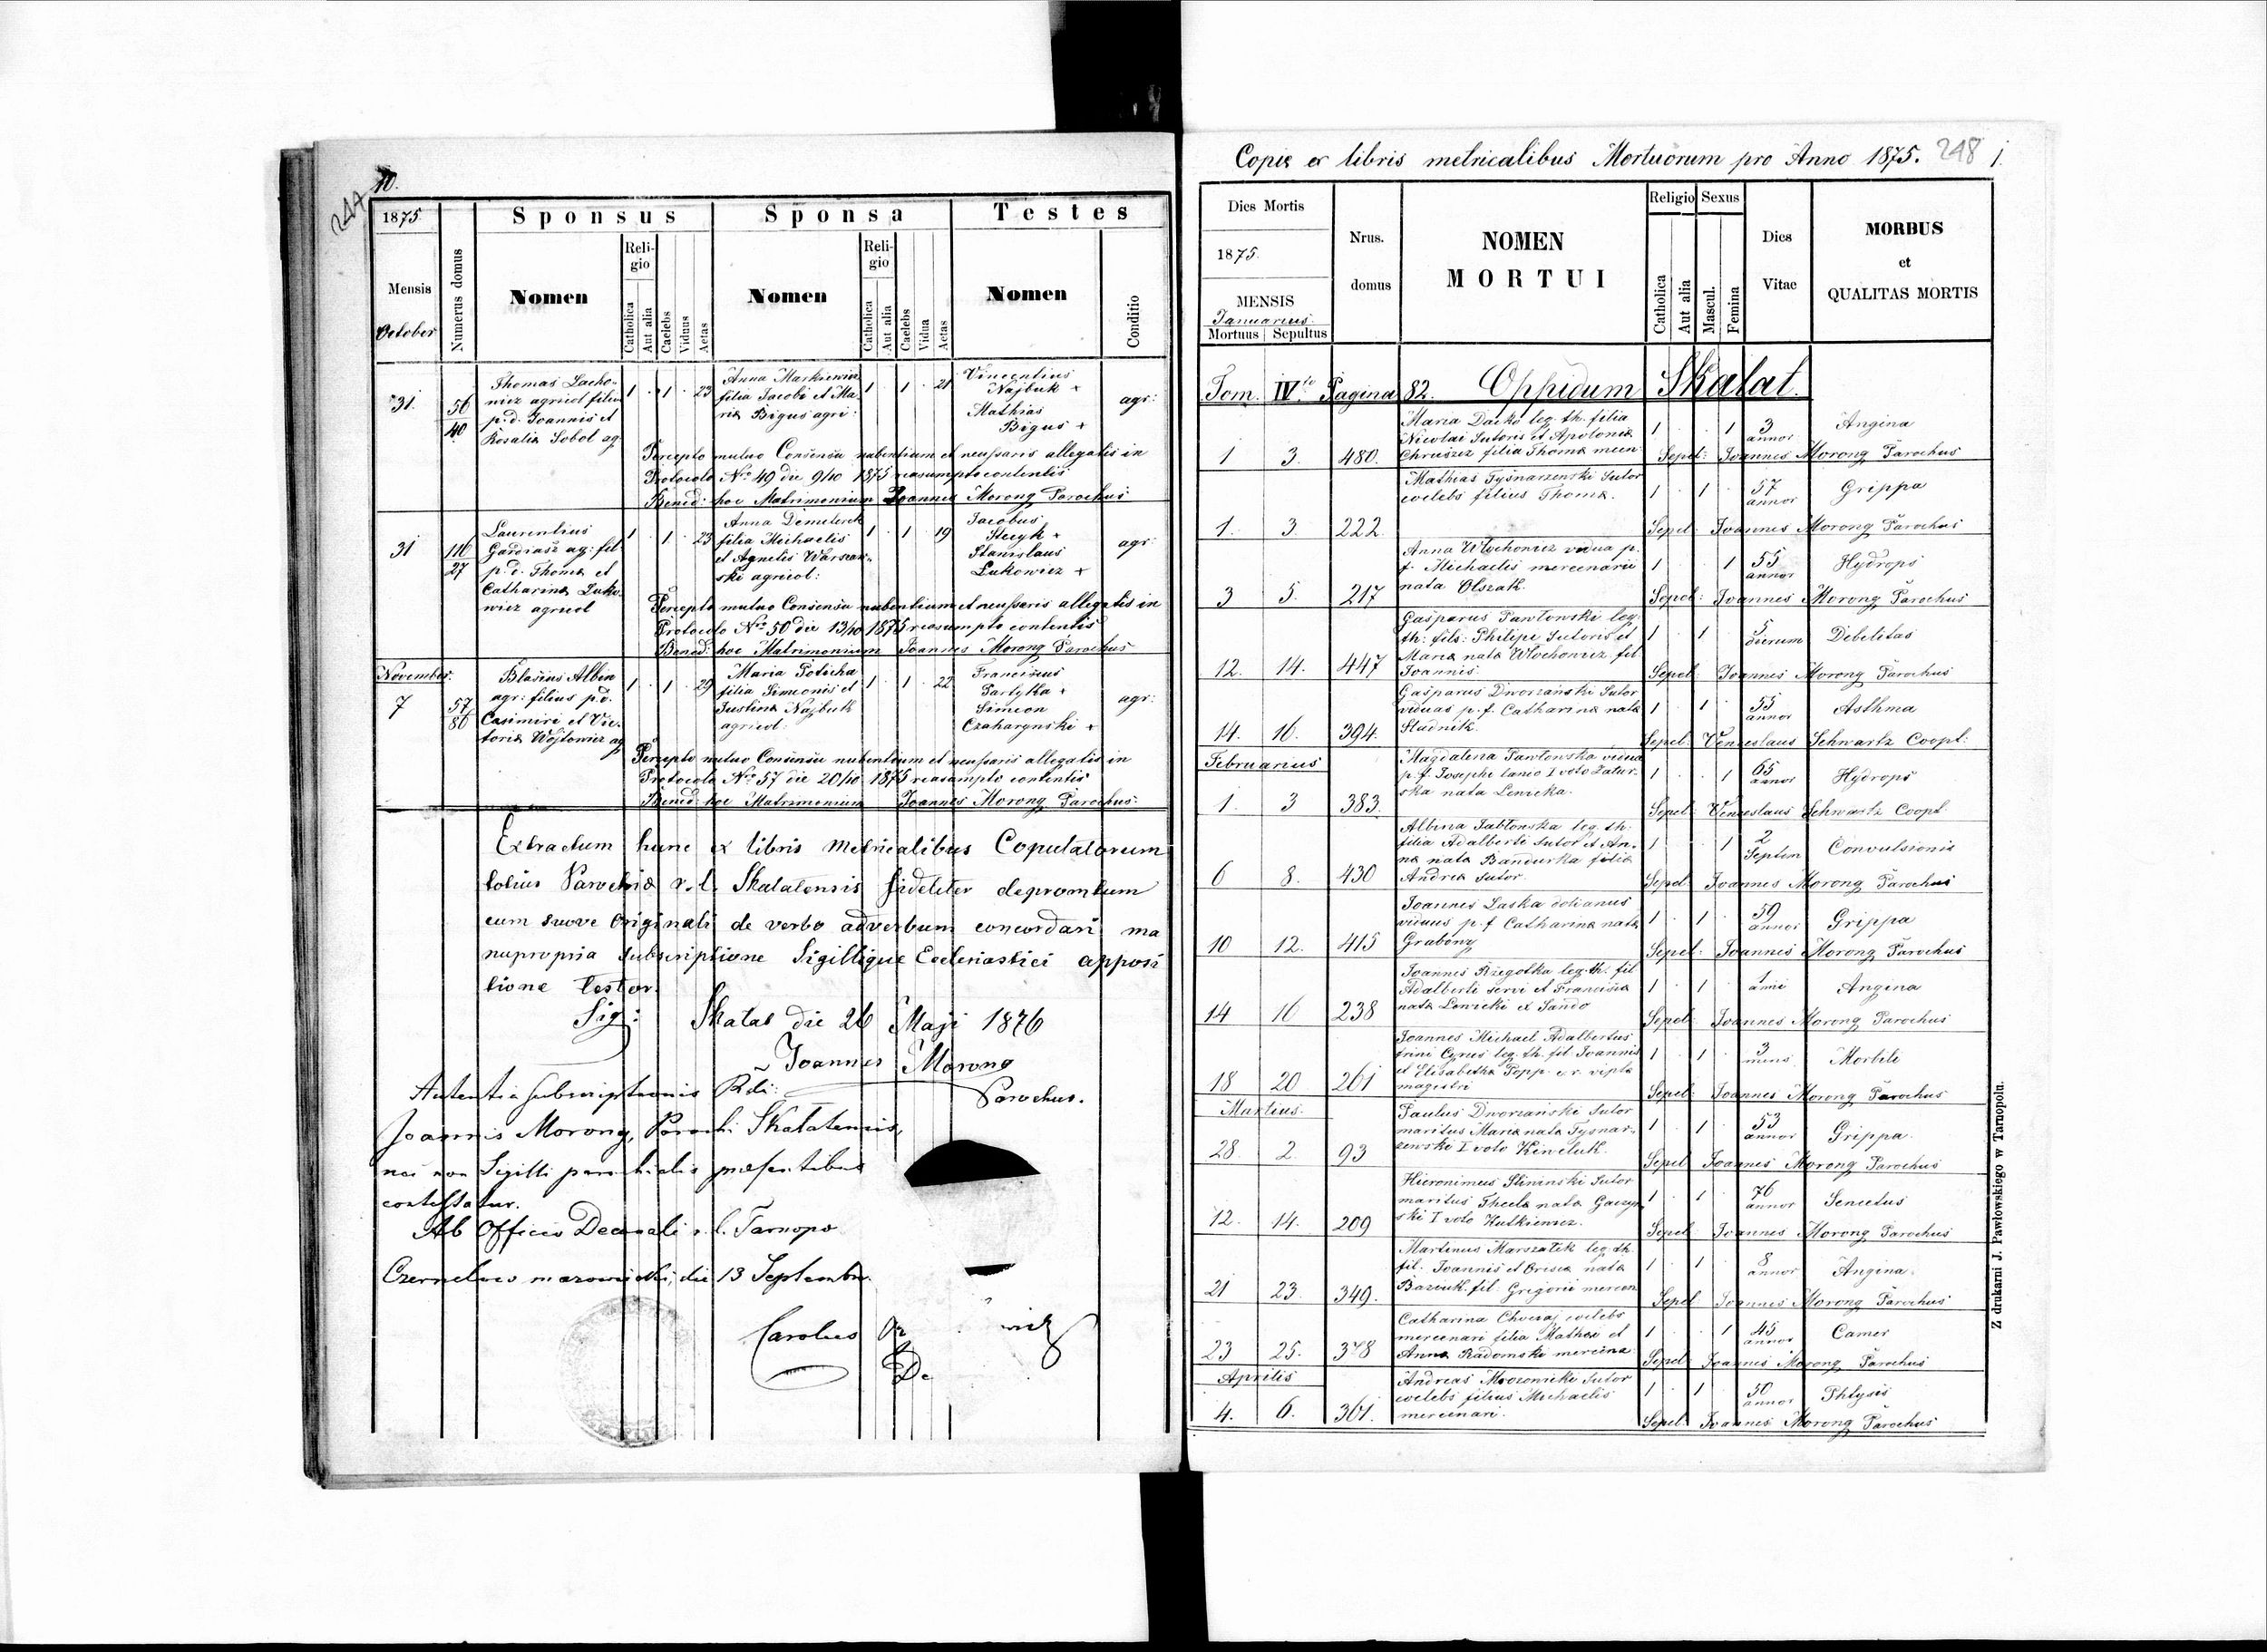 10.
1875
Sponsus
Sponsa
Testes
Mensis
October
Numerus domus
Nomen
Religio
Catholica
Aut alia
Caelebs
Viduus
Aetas
Nomen
Religio
Catholica
Aut alia
Caelebs
Vidua
Aetas
Nomen
Conditio
31. 56 40
Thomas Lacho-
nicz agricol filius
p. d. Joannis et
Rosaliæ Sobol ag
1 . 1 . 23
Anna Markiewicz
filia Jacobi et Ma-
riæ Bigus agri:
1 . 1 . 21
Vincentius
Najbuk +
Mathias
Bigus +
agr:
Percepto mutuo Consensu nubentium et neussaris allegatis in
Protocolo Nro 49 die 9/10 1875 reasumpto contentis
Bened: hoc Matrimonium Joannes Morong Parochus
31 116 27
Laurentius
Gardiasz ag: fil:
p. d. Thomæ et
Catharinæ Luko-
wicz agricol
1 . 1 . 23
Anna Demeterek
filia Michaelis
et Agnetis Warszaw-
ski agricol:
1 . 1 19
Jacobus
Stecyk +
Stanislaus
Lukowicz +
agr:
Percepto mutuo Consensu nubentium et neussaris allegatis in
Protocolo Nro 50 die 13/10 1875 reasumpto contentis
Bened: hoc Matrimonium Joannes Morong Parochus
November.
7 57 86
Blasius Albin
agr: filius p.d.
Casimiri et Vic-
toriæ Wojtowicz ag
1 . 1 . 29
Maria Poticha
filia Simeonis et
Justinæ Najbuk
agricol:
1 . 1 . 22
Franciscus
Partyka +
Simeon
Czaharynski +
agr:
Percepto mutuo Consensu nubentium et neussaris allegatis in
Protocolo Nro 57 die 20/10 1875 reasumpto contentis
Bened: hoc Matrimonium Joannes Morong Parochus.
Extractum hunc ex libris Metricalibus Copulatorum
totius Parochiæ r. l. Skalatensis fideliter depromtum
cum suove Originali de verbo adverbum concordari ma
nupropria subscriptione Sigillique Ecclesiastici apposi
tione testor.
Sig: Skalat die 26 Maji 1876
Joannes Morong
Parochus.
Autentia subscriptionis Rdi:
Joannis Morong, Parochi Skalatensis,
nec non Sigilli parochialis præsentibus
contestatur.
Ab Officio Decanali r. l. Tarnopo
die 13 Septembr.
Carolus
Copia ex libris metricalibus Mortuorum pro Anno 1875. 248 1.
Dies Mortis
1875.
MENSIS
Januarius.
Mortuus Sepultus
Nrus. domus
NOMEN
MORTUI
Religio
Catholica
Aut alia
Sexus
Mascul.
Femina
Dies
Vitae
MORBUS
et
QUALITAS MORTIS
Tom. IVto Pagina 82. Oppidum Skalat.
Maria Dacko leg. th. filia
Nicolai Sutoris et Apoloniæ
Chruszcz filia Thomæ mecn
1 3. 480. 1 . . 1 3 annor Angina
Sepel: Joannes Morong Parochus
Mathias Tysnarzewski Sutor
coelebs filius Thomæ.
1. 3 222. 1 . 1 . 57 annor Grippa
Sepel: Joannes Morong Parochus
Anna Wlochowicz vidua p.
f. Michaelis mercenarii
nata Olszak.
3 5. 217 1 . . 1 55 annor Hydrops
Sepel: Joannes Morong Parochus
Gasparus Pawlowski leg.
th: fils: Philipi Sutoris et
Mariæ nata Wlochowicz fil
Joannis.
12. 14. 447 1 . 1 . 5 dierum Debelitas
Sepel: Joannes Morong Parochus
Gasparus Dworzanski Sutor
viduas p. f. Catharinæ nata
Studnik.
14. 16. 394. 1 . 1 . 55 annor Asthma
Sepel: Venceslaus Schwartz Coopt:
Februarius
Magdalena Pawlowska vidua
p. f. Josephi lanio I voto Zatur-
ska nata Lewicka.
1. 3 383. 1 . . 1 65 annor Hydrops
Sepel: Venceslaus Schwartz Coopt
Albina Jablonska leg. th.
filia Adalberti Sutor et An-
næ nata Bandurka filia
Andreæ Sutor.
6 8. 430 1 . . 1 2 Septem Convulsionis
Sepel: Joannes Morong Parochus
Joannes Laska dolianus
viduus p. f Catharinæ nata
Grabony
10 12. 415 1 . 1 . 59 annor Grippa
Sepel: Joannes Morong Parochus
Joannes Rzegotka leg. th. fil
Adalberti servi et Francisca
nata Lewicki ex Sando
14 16 238 1 . 1 . 1 anni Angina
Sepel: Joannes Morong Parochus
Joannes Michael Adalbertus
trini Cyrus leg. th. fil Joannis
et Elisabethæ Popp
magistri
18 20 261 1 . 1 . 3 mens Morbili
Sepel: Joannes Morong Parochus
Martius.
Paulus Dworzanski Sutor
maritus Mariæ nata Tysnar-
zewski I voto Kiweluk.
28 2. 93 1 . 1 . 53 annor Grippa.
Sepel Joannes Morong Parochus
Hieronimus Sliwinski Sutor
maritus Theclæ nata Gaszyn
ski I voto Hutkiewicz.
12. 14. 209 1 . 1 . 76 annor Senectus
Sepel: Joannes Morong Parochus
Martinus Marszalek leg. th.
fil. Joannis et Orisca nata
Baziuk fil: Grigorii mercen
21 23. 349. 1 . 1 . 8 annor Angina.
Sepel Joannes Morong Parochus
Catharina Chocaj coelebs
mercenari filia Mathei et
Annæ Radomski mercena
23 25. 378 1 . . 1 45 annor Camer
Sepel: Joannes Morong Parochus
Aprilis
Andreas Mrozowicki Sutor
coelebs filius Michaelis
mercenari.
4. 6. 361. 1 . 1 . 50 annor Phtysis
Sepel: Joannes Morong Parochus
Z drukarni J. Pawlowskiego w Tarnopolu.